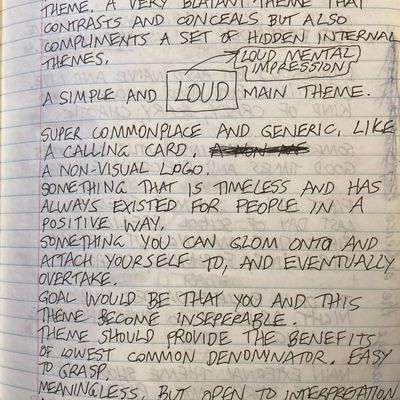 THEME. A VERY BLATANT THEME THAT
CONTRASTS AND CONCEALS BUT ALSO
COMPLIMENTS A SET OF HIDDEN INTERNAL
THEMES.
LOUD MENTAL
IMPRESSION
A SIMPLE AND LOUD MAIN THEME.
SUPER COMMONPLACE AND GENERIC, LIKE
A CALLING CARD.
A NON-VISUAL LOGO.
SOMETHING THAT IS TIMELESS AND HAS
ALWAYS EXISTED FOR PEOPLE IN A
POSITIVE WAY.
SOMETHING YOU CAN GLOM ONTO AND
ATTACH YOURSELF TO, AND EVENTUALLY
OVERTAKE.
GOAL WOULD BE THAT YOU AND THIS
THEME BECOME INSEPERABLE.
THEME SHOULD PROVIDE THE BENEFITS
OF LOWEST COMMON DENOMINATOR. EASY
TO GRASP.
MEANINGLESS, BUT OPEN TO INTERPRETATION